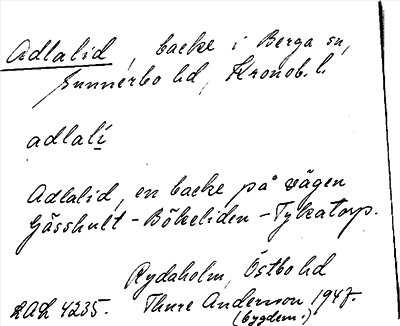 Adlalid, backe i Berga sn,
Sunnerbo hd, Kronob. l.
adlalí
Adlalid, en backe på vägen
Gässhult - Bökeliden - Tykatorp.
Rydaholm, Östbo hd
ULA 4235. Thure Andersson 1947.
(bygdem.)